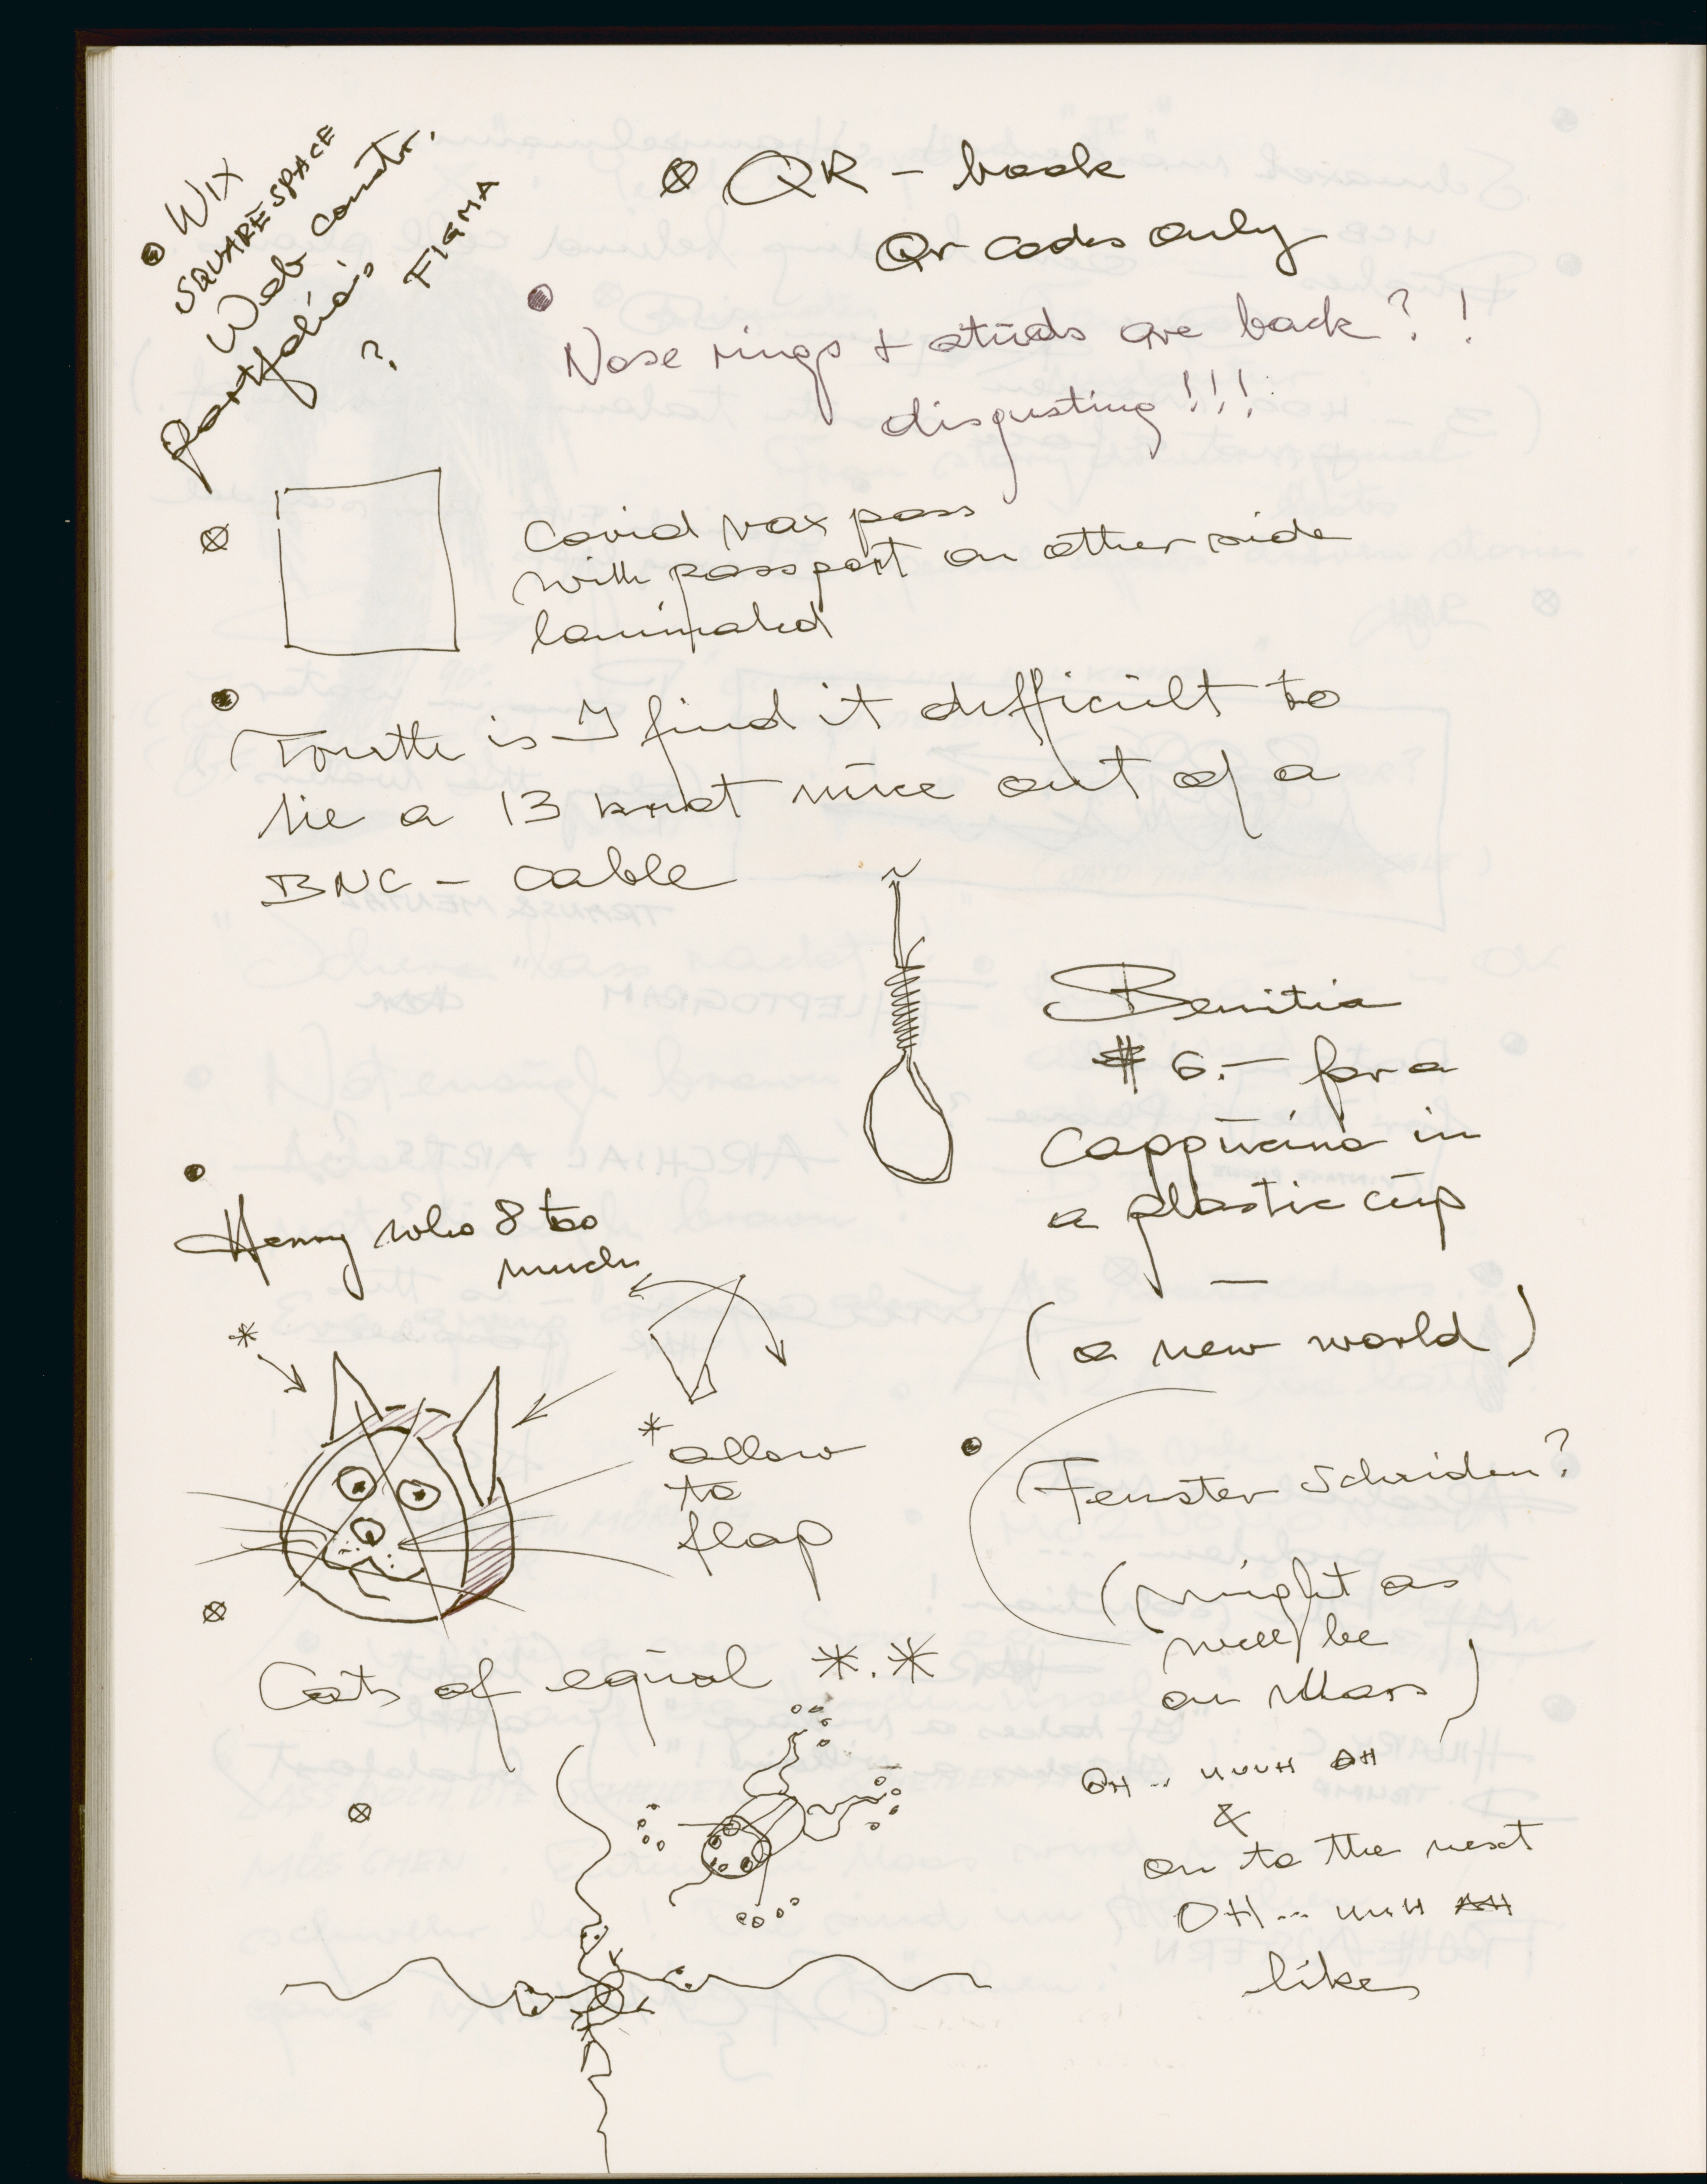 WIX
SQUARESPACE
Web constr.
portfolio's
?
FIGMA
QR - book
Qr codes only
Nose rings + studs are back? !
disgusting!!!
Covid vax pass
with passport on other side
laminated
is I find it difficult to
tie a 13 knot out of a
BNC - cable
$ 6.- for a
cappucino in
a plastic cup
—
(a new world)
Henny who 8 too
much
*
* allow
to
flap
Fenster
(might as
well be
on Mars)
Cats of equal *.*
OH .. UUUH OH
&
on to the next
OH ... UUH AH
like